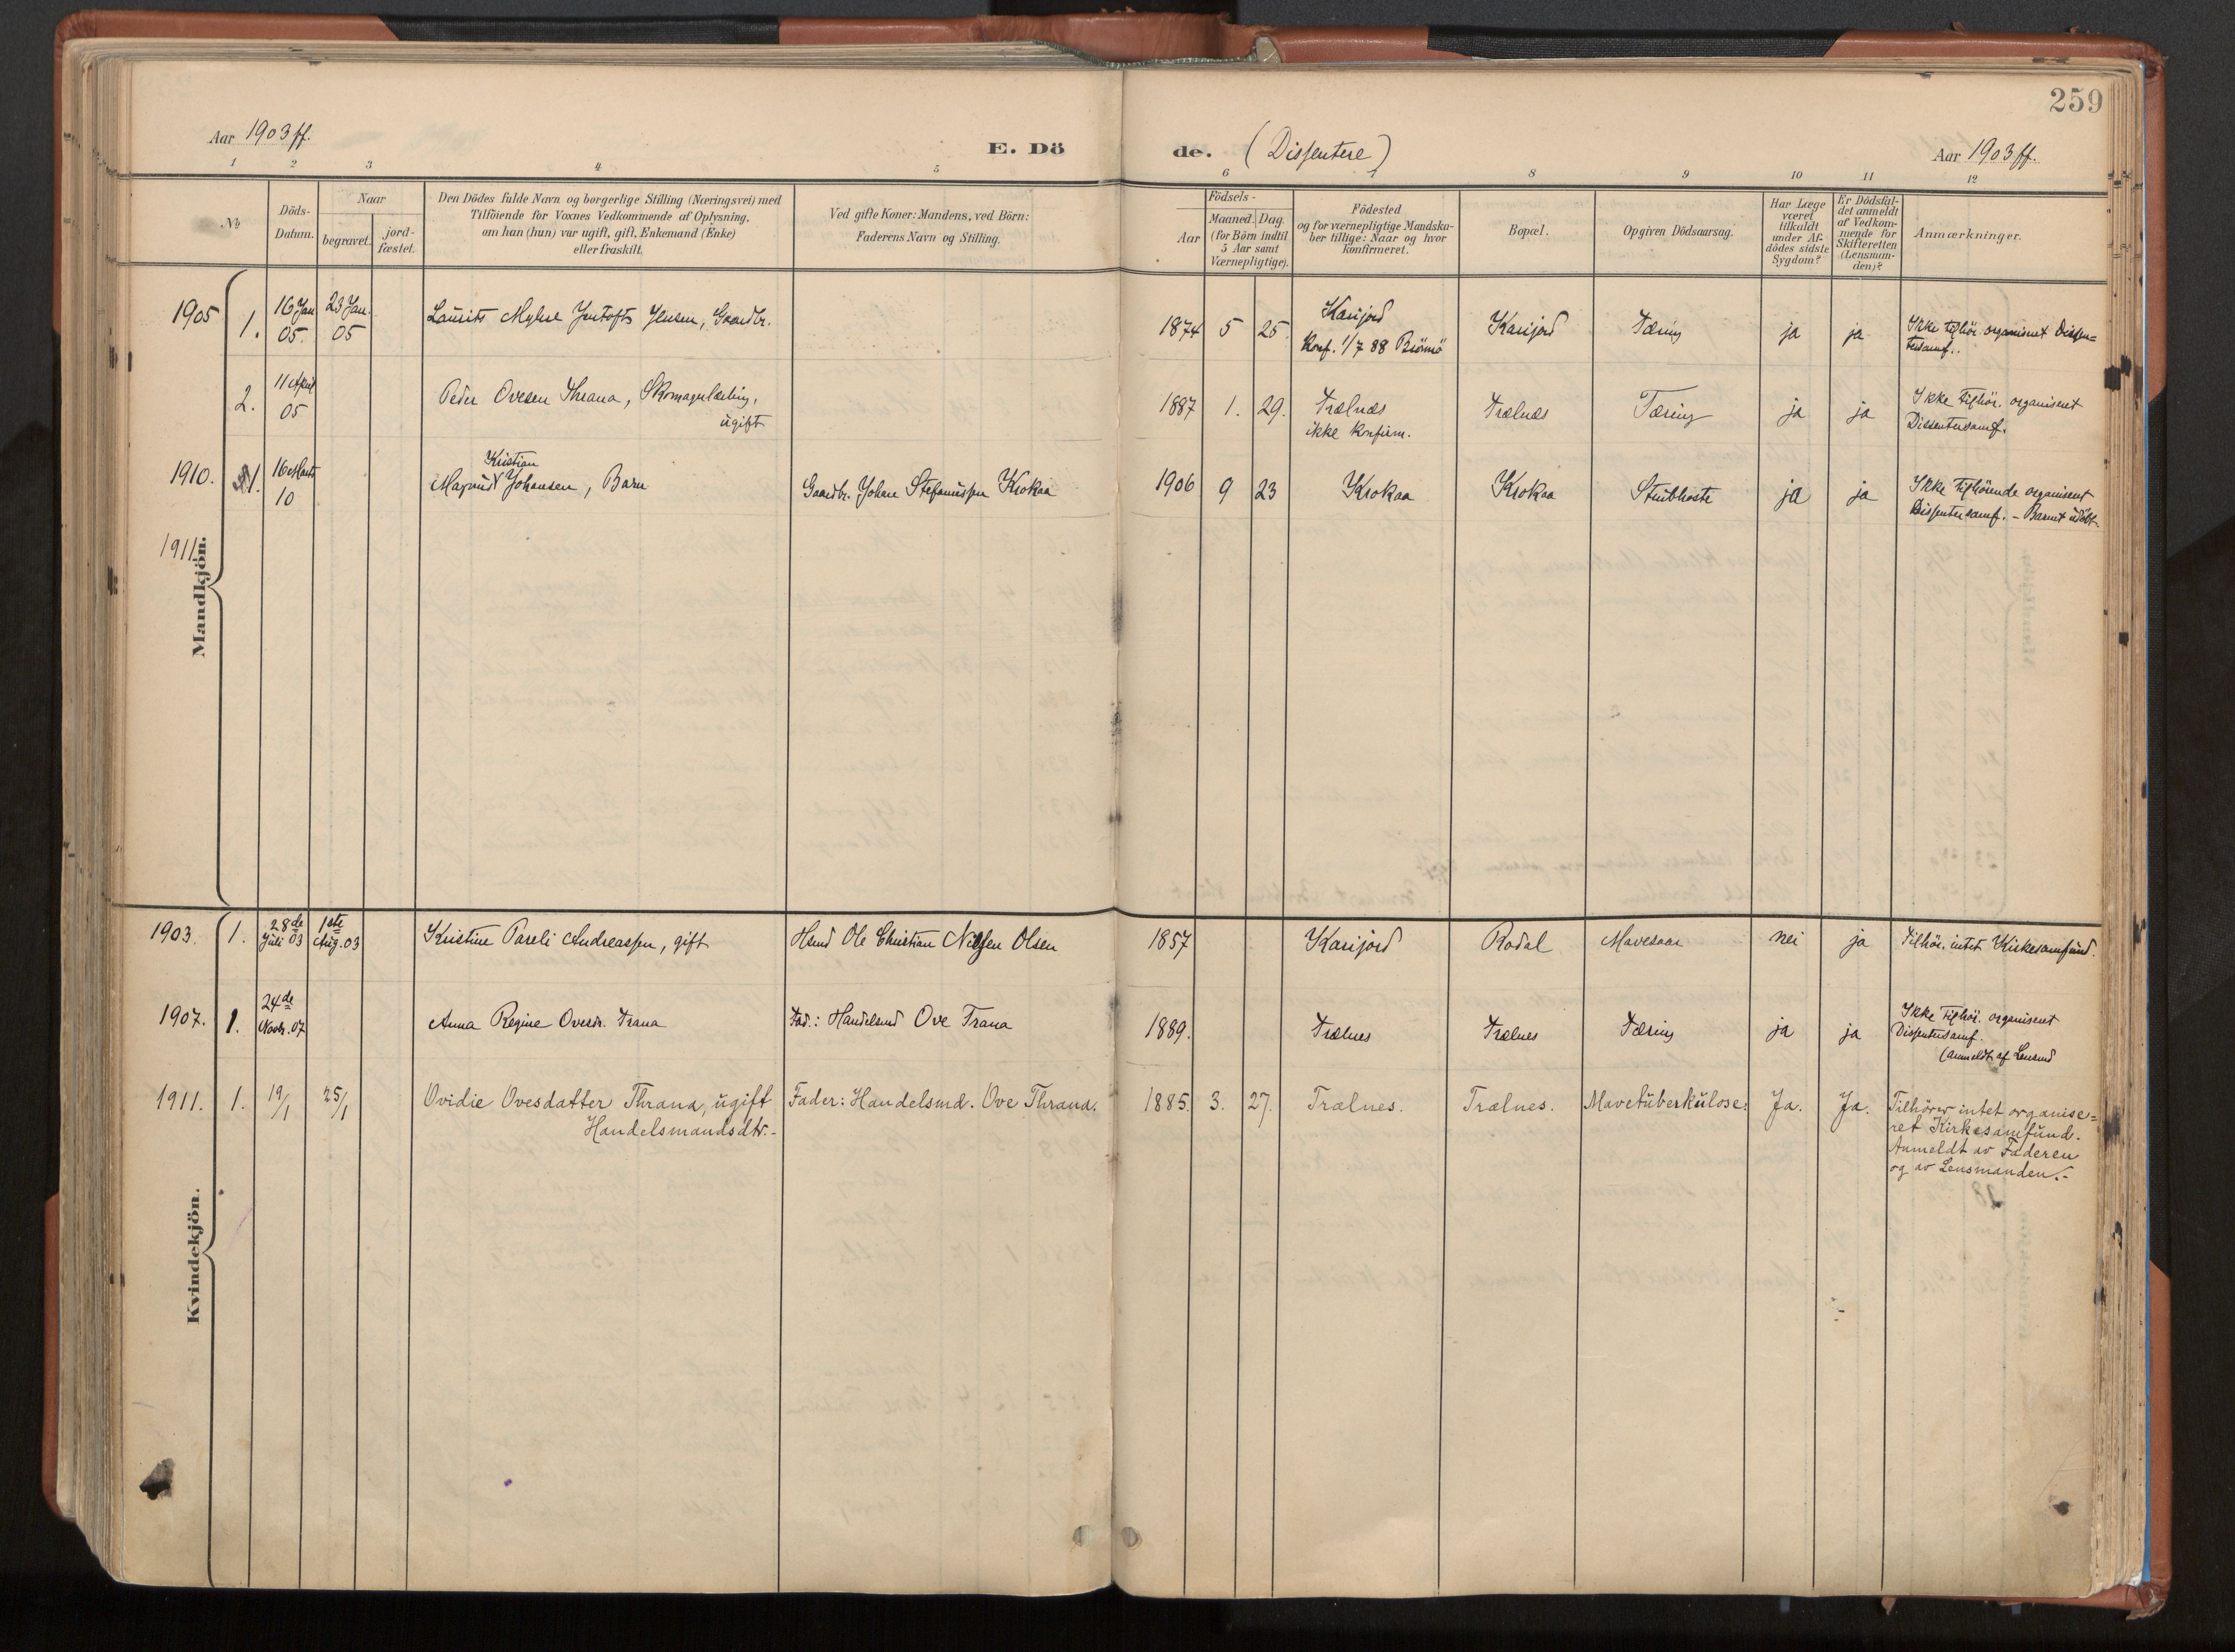 259
Aar 1903 ff.
E. Dö
de. (Dissentere)
Aar 1903 ff.
1 2 3 4 5 6 7 8 9 10 11 12
No
Döds-
Datum.
Naar
begravet.
jord-
fæstet.
Den Dödes fulde Navn og borgerlige Stilling (Næringsvei) med
Tilföiende for Voxnes Vedkommende af Oplysning,
om han (hun) var ugift, gift, Enkemand (Enke)
eller fraskilt.
Ved gifte Koner: Mandens, ved Börn:
Faderens Navn og Stilling.
Födsels-
Aar
Maaned. Dag.
(for Börn indtil
5 Aar samt
Værnepligtige).
Födested
og for værnepligtige Mandska-
ber tillige: Naar og hvor
konfirmeret.
Bopæl.
Opgiven Dödsaarsag.
Har Læge
været
tilkaldt
under Af-
dödes sidste
Sygdom?
Er Dödsfal-
det anmeldt
af Vedkom-
mende for
Skifteretten
(Lensman-
den)?
Anmærkninger.
Mandkjön.
1905 1. 16 Jan 05. 23 Jan. 05
Laurits Myhre Jentofts Jensen, Gaardbr.
1874 5 25.
Karijord
Konf. 1/7 88 Brönnö
Karijord
Tæring
ja
ja
Ikke tilhör. organiseret Dissen=
tersamf..
2. 11 April 05
Peder Ovesen Thrana, Skomagerlærling,
ugift
1887 1. 29.
Trælnæs
ikke konfirm.
Trælnæs
Tæring
ja
ja
Ikke tilhör. organiseret
Dissentersamf.
1910. 1. 16 Marts 10
Kristian
Magnus Johansen, Barn
Gaardbr. Johan Stefanussen Krokaa
1906 9 23
Krokaa
Krokaa
Strubhoste
ja
ja
Ikke tilhörende organiseret
Dissentersamf. - Barnet udöbt.
1911.
Kvindekjön.
1903. 1. 28de Juli 03 1ste Aug. 03
Kristine Pareli Andreassen, gift
Hsmd Ole Christian Nilsen Olsen
1857
Karijord
Rodal
Mavesaar
nei
ja
Tilhör. intet Kirkesamfund.
1907. 1. 24de Novbr. 07
Anna Regine Ovesdr. Trana
Fad.: Handelsmd Ove Trana
1889.
Trælnes
Trælnes
Tæring
ja
ja
Ikke tilhör. organiseret
Dissentersamf.
(anmeldt af Lensmd
1911. 1. 19/1 25/1
Ovidie Ovesdatter Thrana, ugift
Handelsmandsdtr.-
Fader: Handelsmd. Ove Thrana.
1885. 3. 27.
Trælnes.
Trælnes.
Mavetüberkulose.
Ja.
Ja.
Tilhörer intet organise=
ret Kirkesamfund.
Anmeldt av Faderen
og av Lensmanden.-